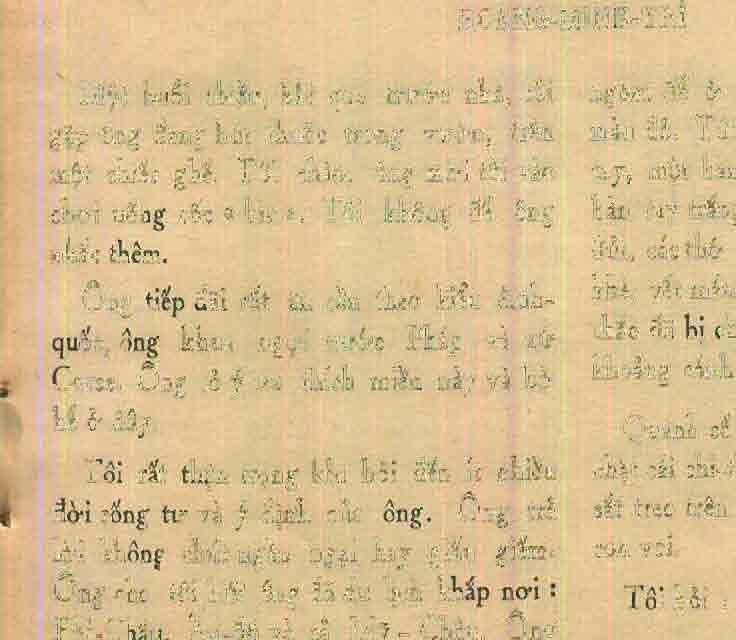 HOÀNG-MINH-TRÍ
Một buổi chiều, khi qua trước nhà, tôi
gặp ông đang hút thuốc trong vườn, trên
một chiếc ghế. Tôi chào. ông mời tôi vào
chơi uống cốc « bia ». Tôi không để ông
nhắc thêm.
Ông tiếp đãi rất ân cần theo kiểu Anh-
quốc, ông khen ngợi nước Pháp và xứ
Corse. Ông tỏ ý ưa thích miền này và bờ
bể ở đây.
Tôi rất thận trọng khi hỏi đến ít nhiều
đời sống tư và ý định của ông. Ông trả
lời không chút ngần ngại hay giấu giếm.
Ông cho tôi biết ông đã du lịch khắp nơi :
Phi-Châu, Ấn-độ và cả Mỹ - Châu. Ông
ngôn để ở
màu đỏ. Tôi
tay, một bàn
bàn tay trắng
đủi, các thớ
khô vết máu
chắc đã bị ch
khoảng cánh
Quanh cổ
chặt cái chi
sắt treo trên
con voi.
Tôi hỏi :